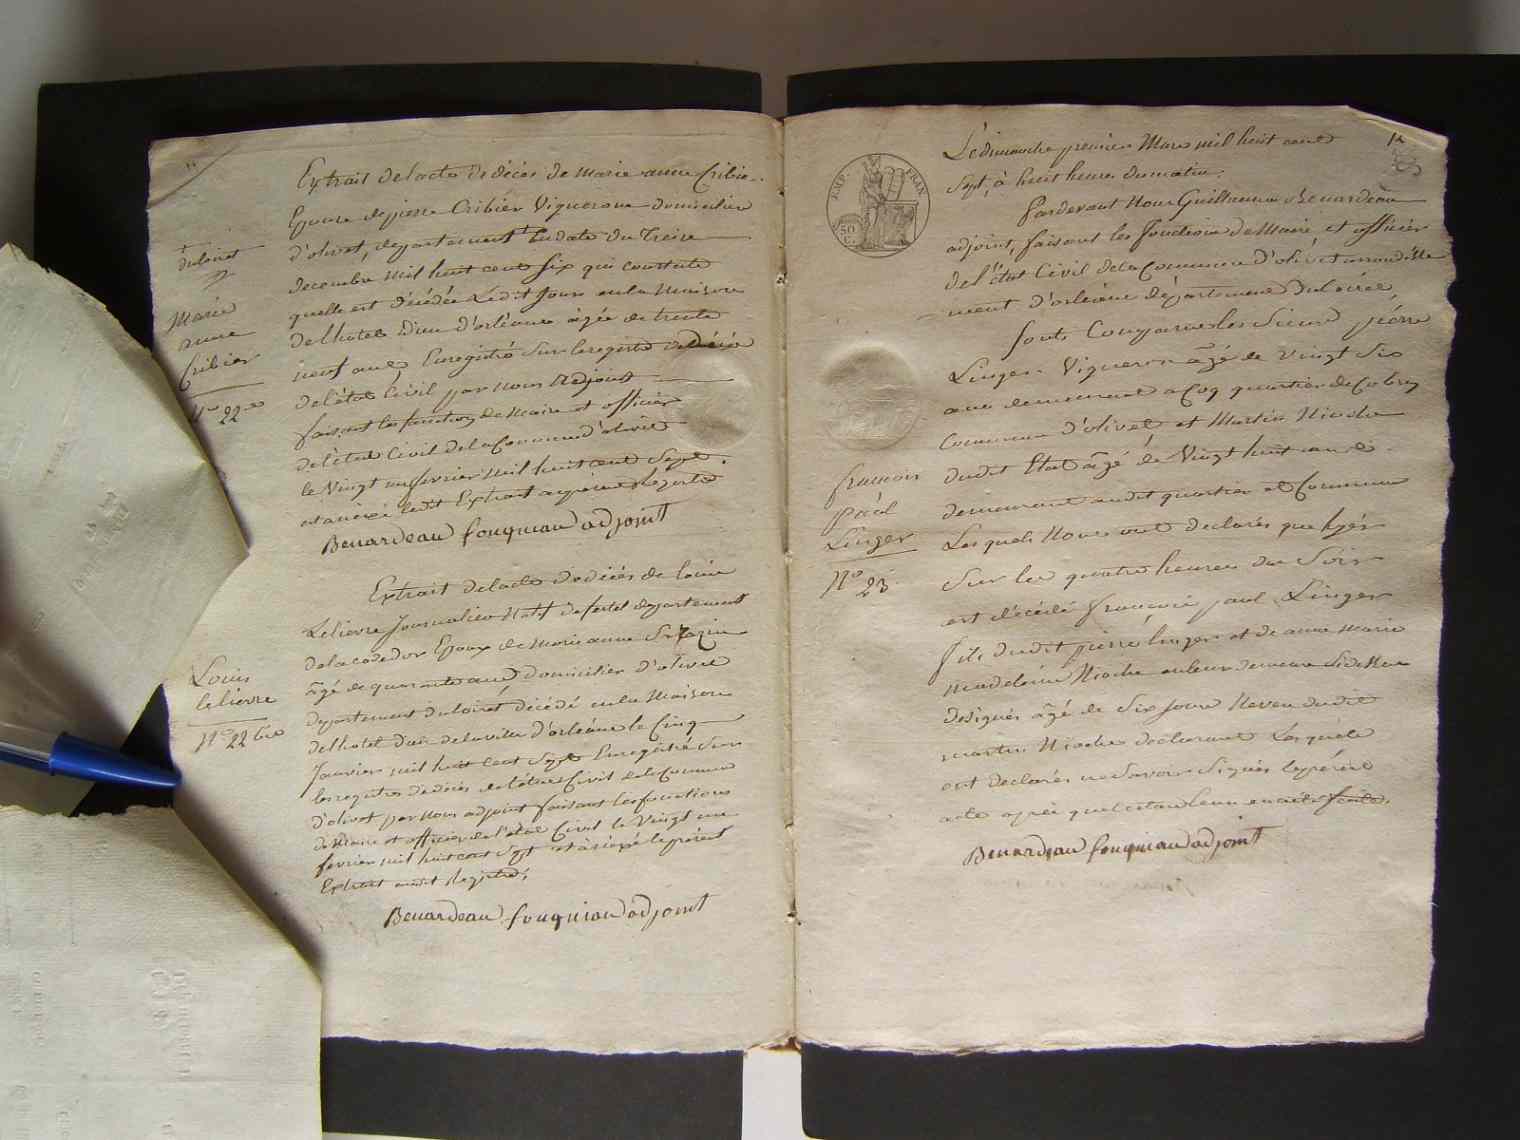 Extrait de lacte de décès de marie anne Cribier
Epouse de pierre Cribier Vigneron domicilier
d'olivet, departement En date du Treize
duloiret
decembre mil huit cent six qui constate
quelle est décédée Ledit Jour en la Maison
Marie
anne
Cribier
N° 22
de lhotel dieu d'orléans âgée de trente
neuf ans Enregistré Sur le registre de décès
de l'état Civil par nous Adjoint
faisant les fonction de Maire et officier
de l'état Civil de la Commune d'olivet
le Vingt un fevrier mil huit cent Sept.
et annexé ledit Extrait au présent Registre
Benardeau fouqniau adjoint
Extrait de lacte de décès de louis
Lelievre Journalier Natif de departement
de la cote dor Epoux de Marie anne Sarazin
âgé de quarante ans, domicilier d'olivet
Louis
lelievre
N° 22 bis
departement du loiret décédé en la Maison
de lhotel dieu de la ville d'orléans le Cinq
Janvier mil huit cent Sept Enregistré Sur
les registres de décès de l'état Civil de la Commune
d'olivet par nous adjoint faisant les fonctions
de Maire et officier de l'état Civil le Vingt un
fevrier mil huit cent Sept et annexé le présent
Extrait audit Registre,
Benardeau fouqniau adjoint
12
EMP. FRAN
50 C.
Le dimanche premier Mars mil huit cent
Sept, à huit heures du matin,
Pardevant Nous Guillaume Benardeau
adjoint, faisant les fonctions de Maire et officier
de l'état Civil de la Commune d'olivet arrondisse
ment d'orléans departement du Loiret,
Sont Comparus les Sieurs pierre
Linger Vigneron âgé de Vingt Six
ans demeurant a Coq quartier de
Commune d'olivet et Martin Nioche
françois
paul
Linger
N° 23.
dudit Etat âgé de Vingt huit ans
demeurant audit quartier et Commune
Lesquels Nous ont declarés que hyer
Sur les quatre heures du Soir
est décédé françois paul Linger
fils dudit pierre linger et de anne Marie
madelaine Nioche en leur demeure
designés âgé de Six Jours Neveu dudit
martin Nioche declarant Lesquels
ont declarés ne Savoir Signés le présent
acte après que lecture leur en a été faite.
Benardeau fouqniau adjoint